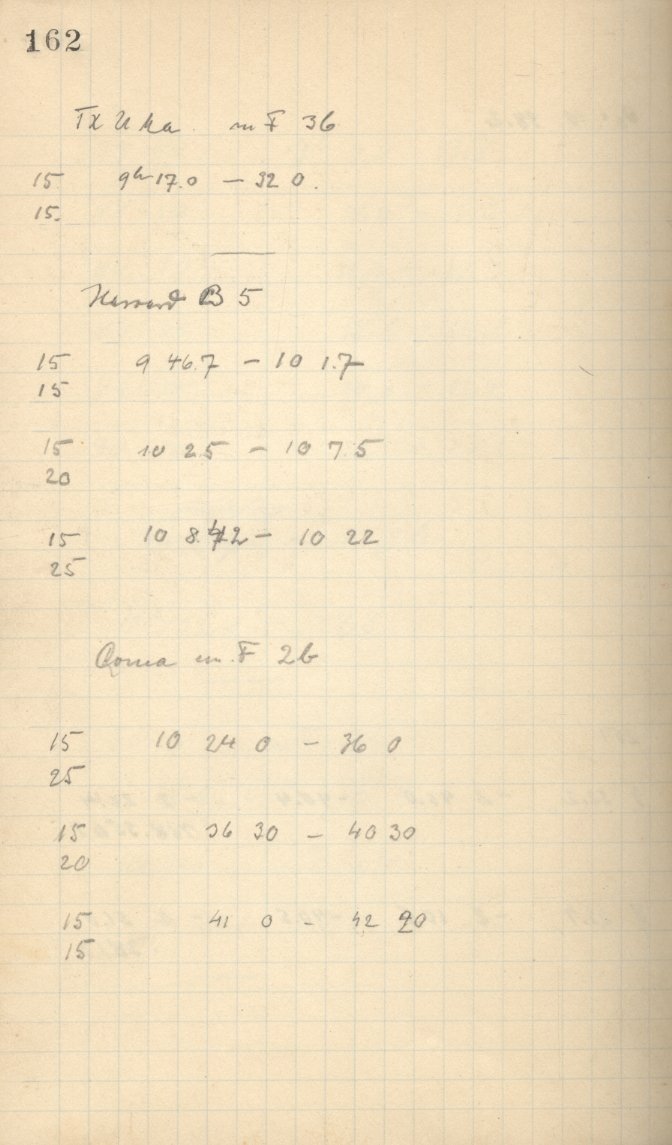 162
TX U Ma in F 36
15 9h 17.0 – 32 0.
15.
Harvard B 5
15 9 46.7 – 10 1.7
15
15 10 2.5 – 10 7.5
20
15 10 8. – 10 22
25
Coma in F 26
15 10 24 0 – 36 0
25
15 36 30 – 40 30
20
15 41 0 – 42 20
15